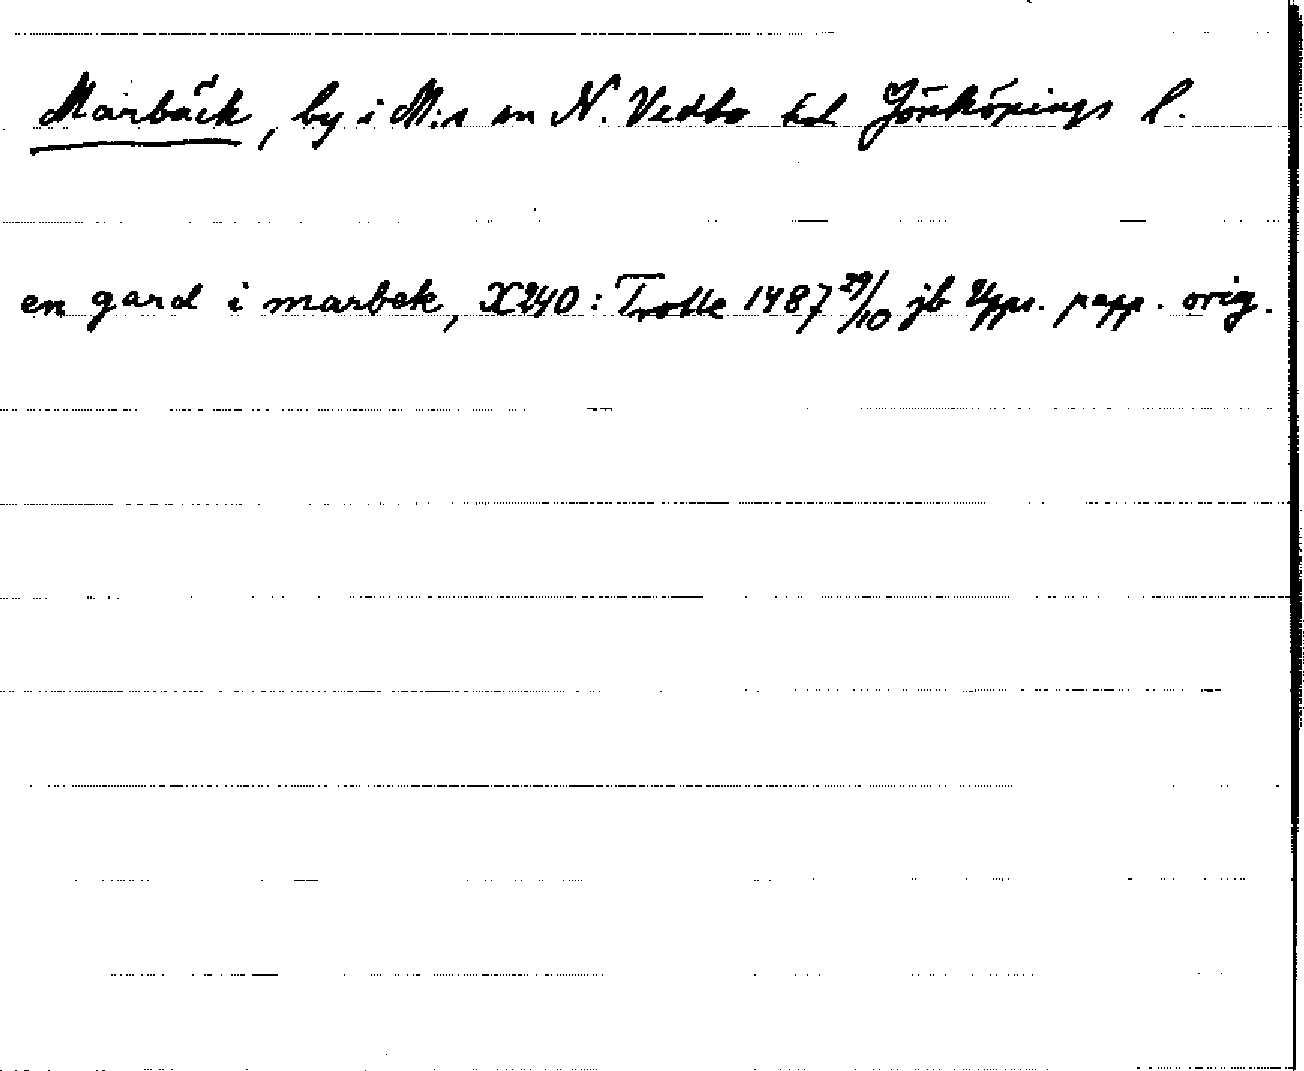 Marbäck, by i M:s sn N. Vedbo hd Jönköpings l.
en gard i marbek, X240: Trolle 1487 29/10 jb Upps. papp. orig.